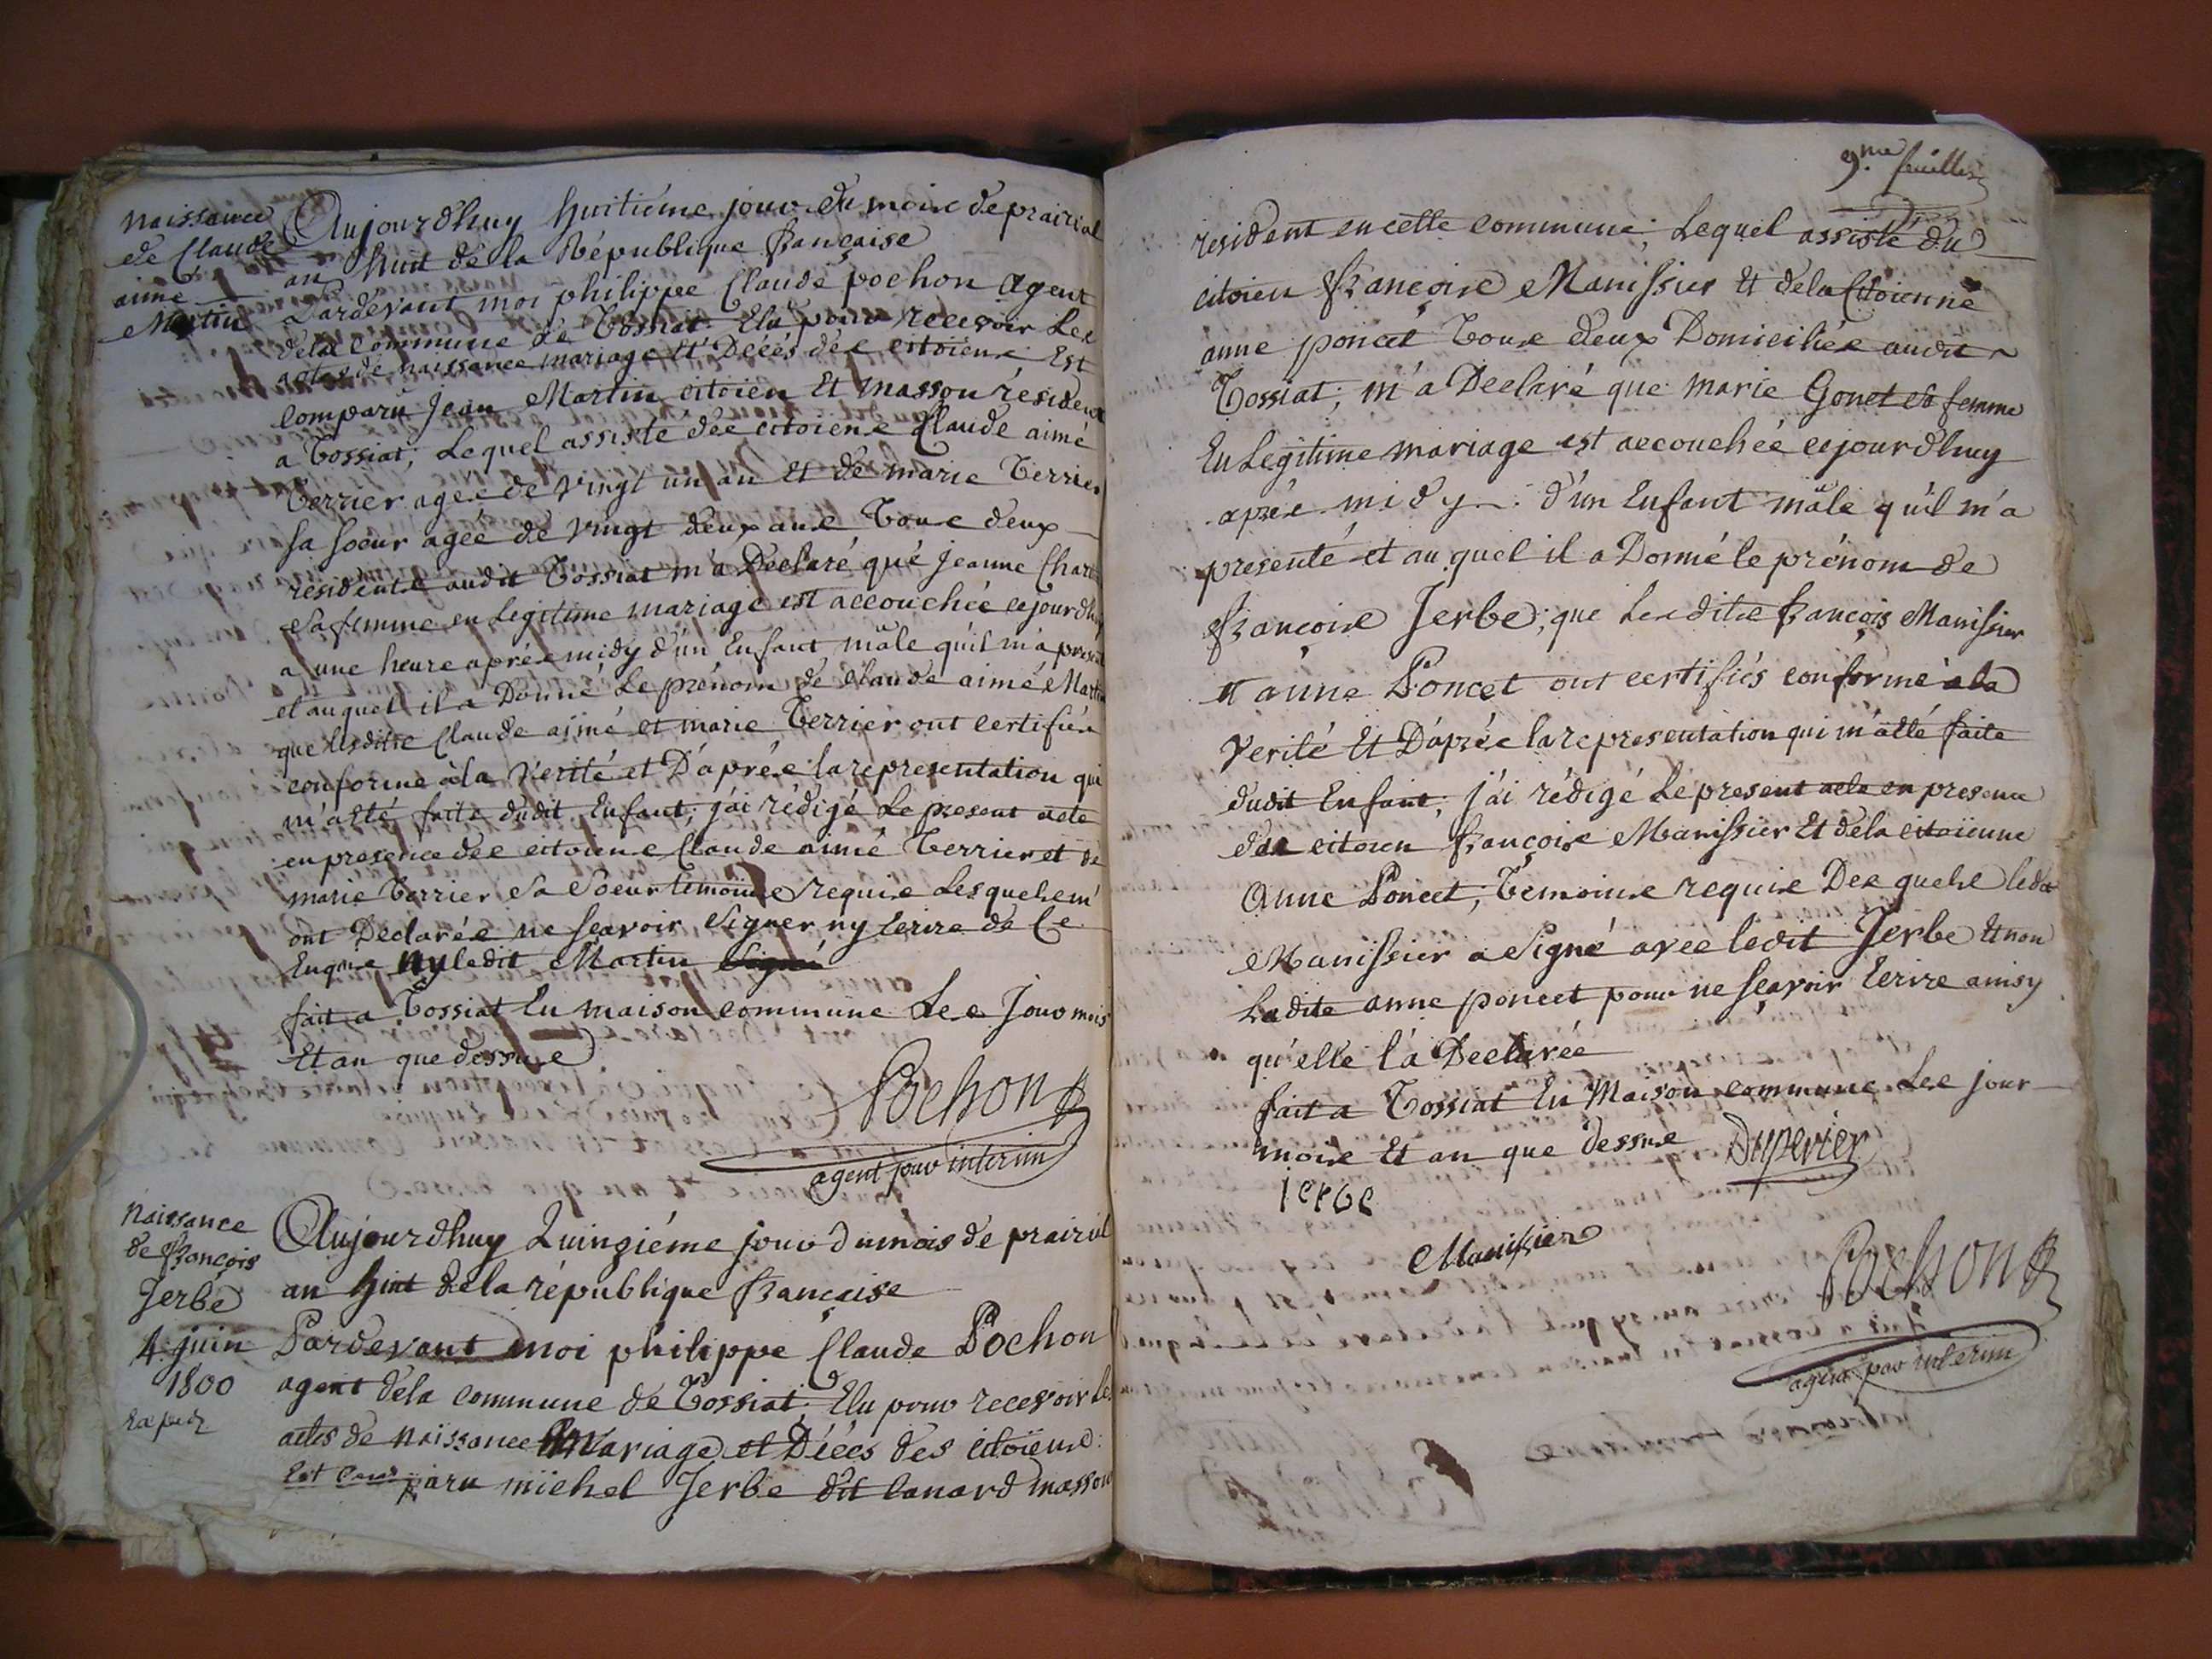 naissance
de Claude
aimé
Martin
Aujourdhuy huitiéme jour du mois de prairial
an huit de la République française
Pardevant moi philippe Claude pochon Agent
dela Commune de Tossiat Elu pour recevoir Les
actes de naissance mariage et Décés des citoiens Est
comparu Jean Martin citoien Et masson résident
a Tossiat, Lequel assisté des citoiens Claude aimé
Terrier agée de vingt un an et de marie Terrier
sa soeur agée de vingt deux ans Tous deux
résidents audit Tossiat m'a Déclaré que Jeanne
sa femme en Legitime mariage est accouchée cejourdhuy
a une heure aprés midy d'un Enfant mâle qu'il m'a presenté
et auquel il a Donné Le prénom de Claude aimé Martin
que lesdits Claude aimé et marie Terrier ont certifiés
conforme à la Verité et D'aprés la representation qui
m'a été faite dudit Enfant, j'ai rédigé Le present acte
en presence des citoiens Claude aimé Terrier et de
marie Terrier Sa Soeur temoins requis Lesquels m'
ont Declarés ne sçavoir Signer ny Ecrire de Ce
Enquis ny ledit Martin
fait a Tossiat En maison commune Les Jour mois
Et an que dessus
Pochon
agent par interim
Naissance
de François
Jerbe
4 juin
1800
Aujourdhuy Quinziéme jour du mois de prairial
an huit dela république française
Pardevant moi philippe Claude Pochon
agent dela commune de Tossiat, Elu pour recevoir les
actes de naissance Mariage et Décès des citoïens
Est comparu michel Jerbe dit Canard masson
9.me feuillet
resident en cette commune, Lequel assisté du
citoien François Manissier Et dela Citoienne
anne poncet Tous deux Domiciliés audit
Tossiat, m'a Declaré que marie Gonet sa femme
En Legitime mariage est accouchée cejourdhuy
aprés midy d'un Enfant mâle qu'il m'a
presenté et au quel il a Donné le prénom de
François Jerbe; que Lesdits François Manissier
et anne Poncet ont certifiés conforme à la
Verité Et D'aprés la representation qui m'a été faite
dudit Enfant, j'ai rédigé Le present acte en presence
du citoien François Manissier Et dela citoienne
Anne Poncet, Temoins requis Des quels ledit
Manissier a Signé avec ledit Jerbe Et non
Ladite anne poncet pour ne sçavoir Ecrire ainsy
qu'elle l'a Declarée
fait a Tossiat En Maison commune Les jour
mois Et an que dessus Dupervier
jerbe
Manissier
Pochon
agent par interim